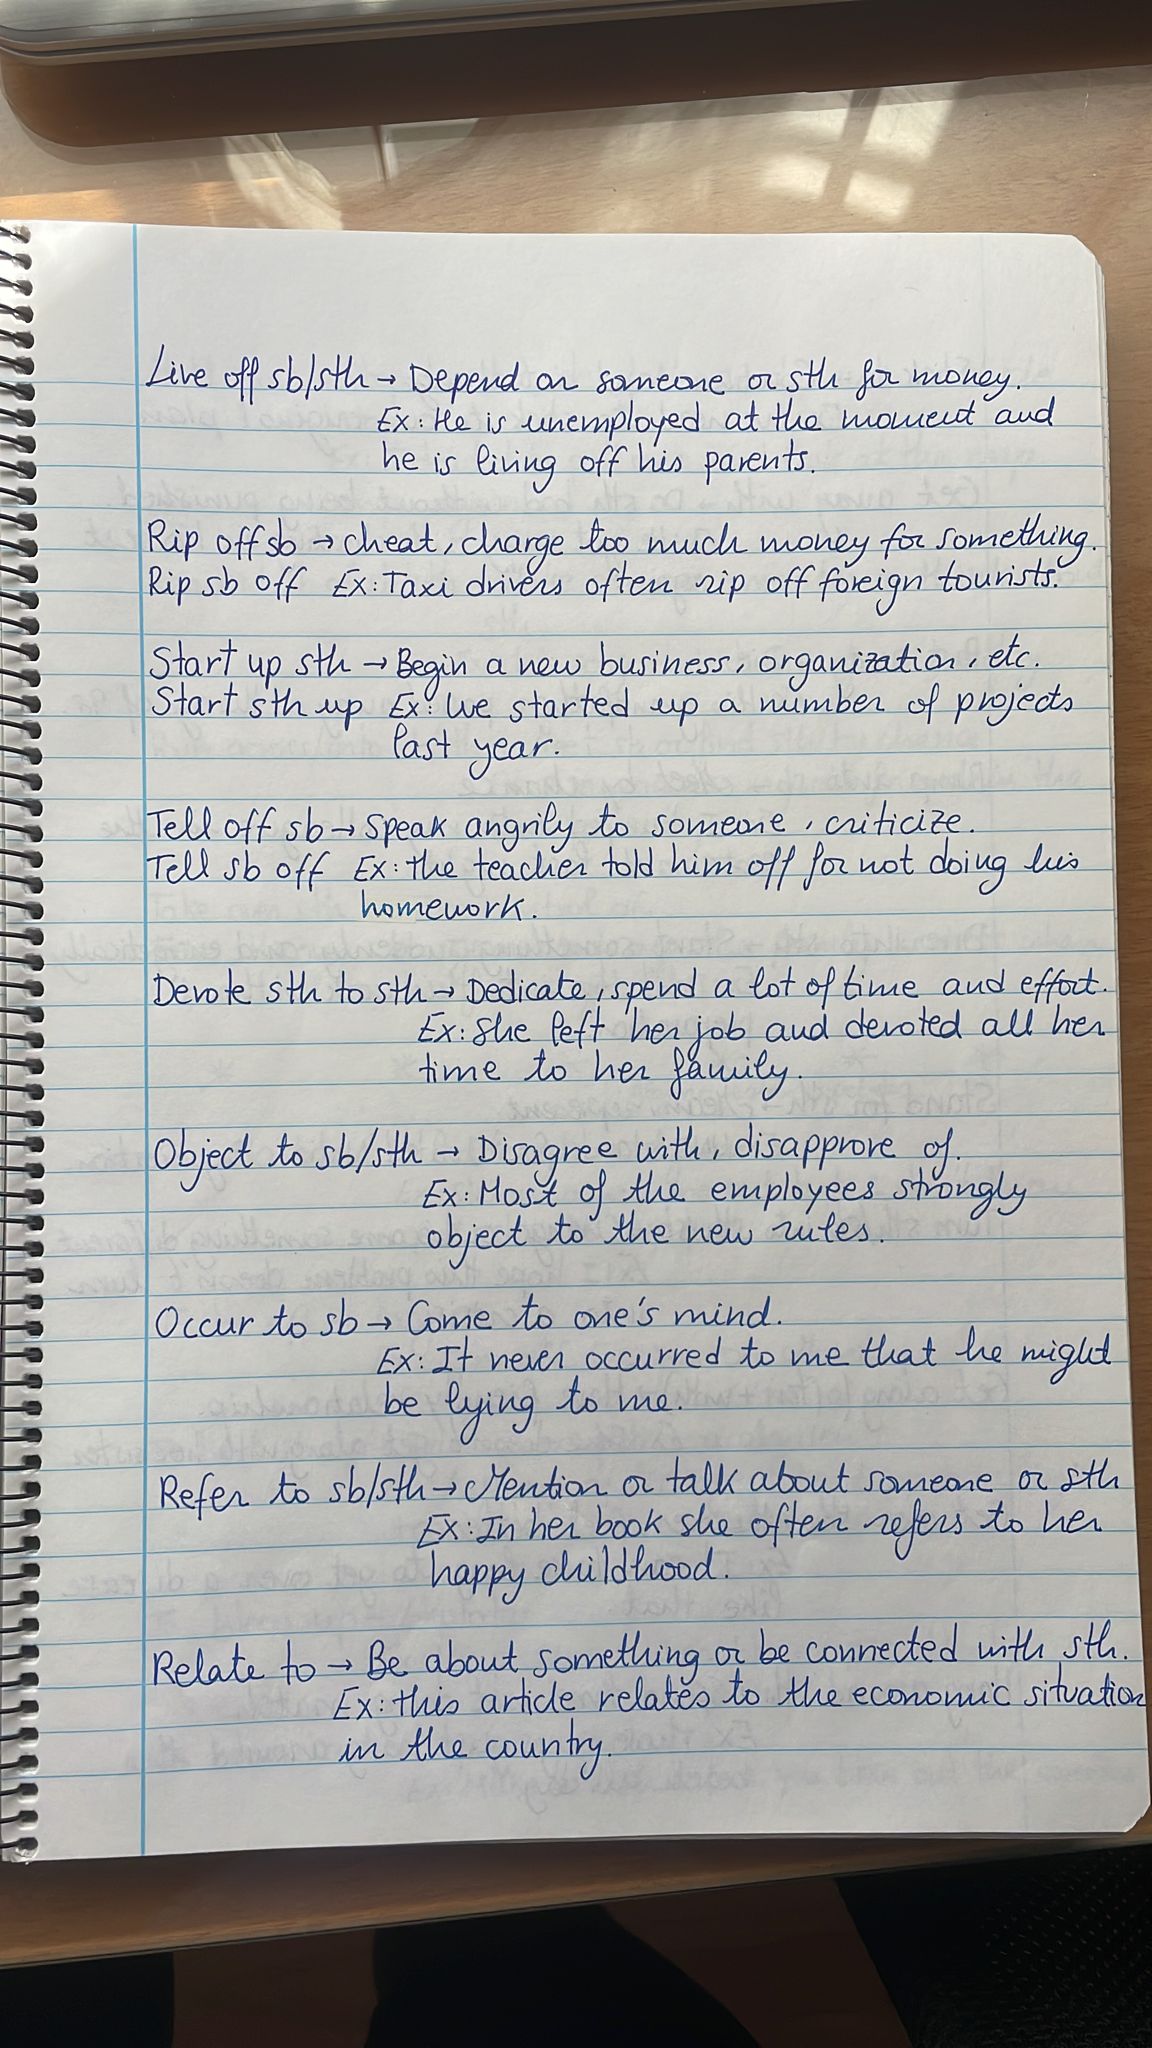 Live off sb/sth → Depend on someone or sth for money.
Ex: He is unemployed at the moment and
he is living off his parents.
Rip off sb → cheat, charge too much money for something.
Rip sb off Ex: Taxi drivers often rip off foreign tourists.
Start up sth → Begin a new business, organization, etc.
Start sth up Ex: We started up a number of projects
last year.
Tell off sb → Speak angrily to someone, criticize.
Tell sb off Ex: the teacher told him off for not doing his
homework.
Devote sth to sth → Dedicate, spend a lot of time and effort.
Ex: She left her job and devoted all her
time to her family.
Object to sb/sth → Disagree with, disapprove of.
Ex: Most of the employees strongly
object to the new rules.
Occur to sb → Come to one's mind.
Ex: It never occurred to me that he might
be lying to me.
Refer to sb/sth → Mention or talk about someone or sth
Ex: In her book she often refers to her
happy childhood.
Relate to → Be about something or be connected with sth.
Ex: this article relates to the economic situation
in the country.